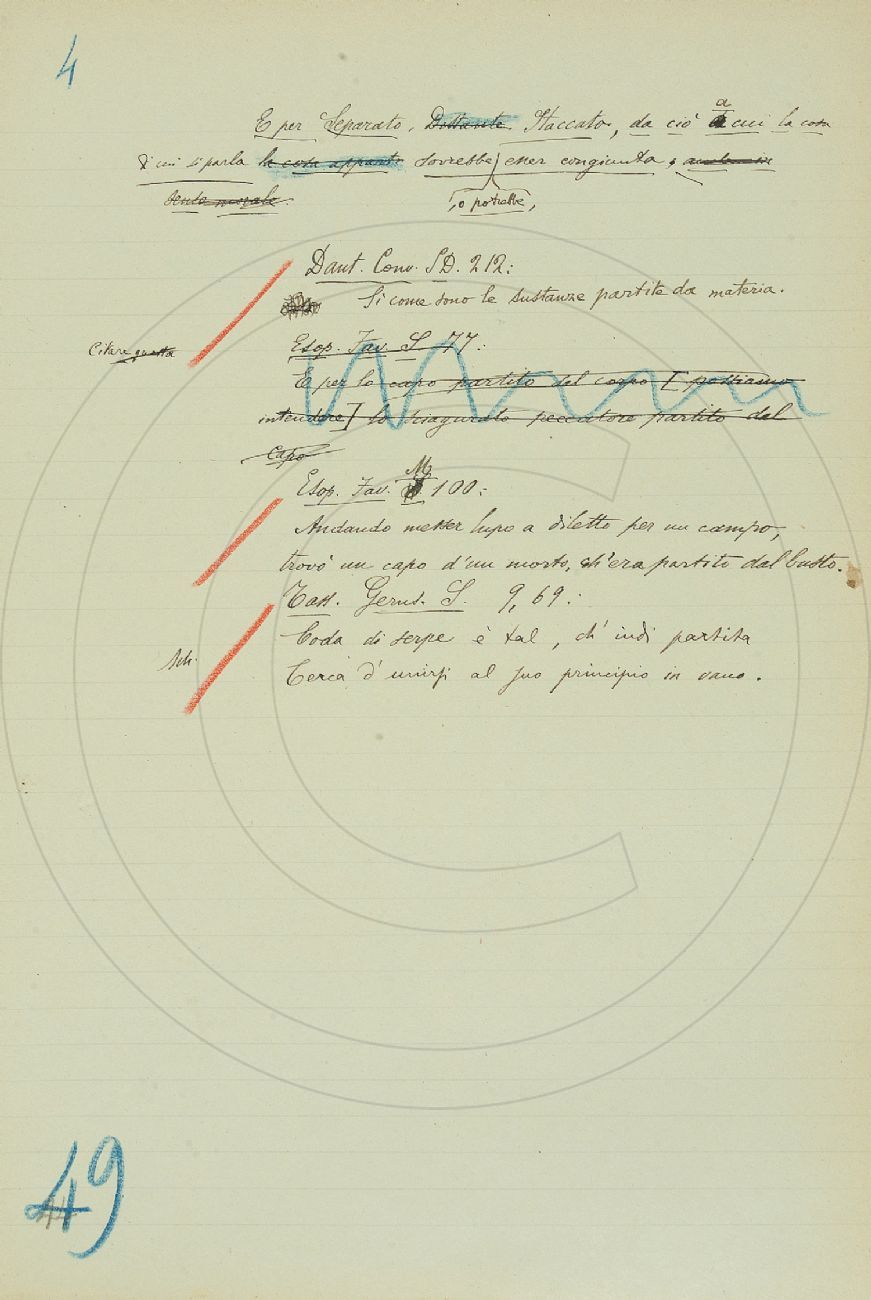 4
a
E per Separato, Distante Staccato, da ciò a cui la cosa
di cui si parla la cosa apparte dovrebbe esser congiunta, anche in
senso morale.
, o potrebbe,
Dant. Conv. SD. 212:
Si come sono le sustanze partite da materia.
Citare questa
Esop. Fav. S 77:
E per lo capo partito del corpo [possiamo
intendere] lo sciagurato peccatore partito dal
capo
M
Esop. Fav. 100:
Andando messer lupo a diletto per un campo,
trovò un capo d'un morto, ch'era partito dal busto.
Tass. Gerus. S. 9, 69:
Coda di serpe è tal, ch' indi partita
Cerca d' unirsi al suo principio in vano.
49